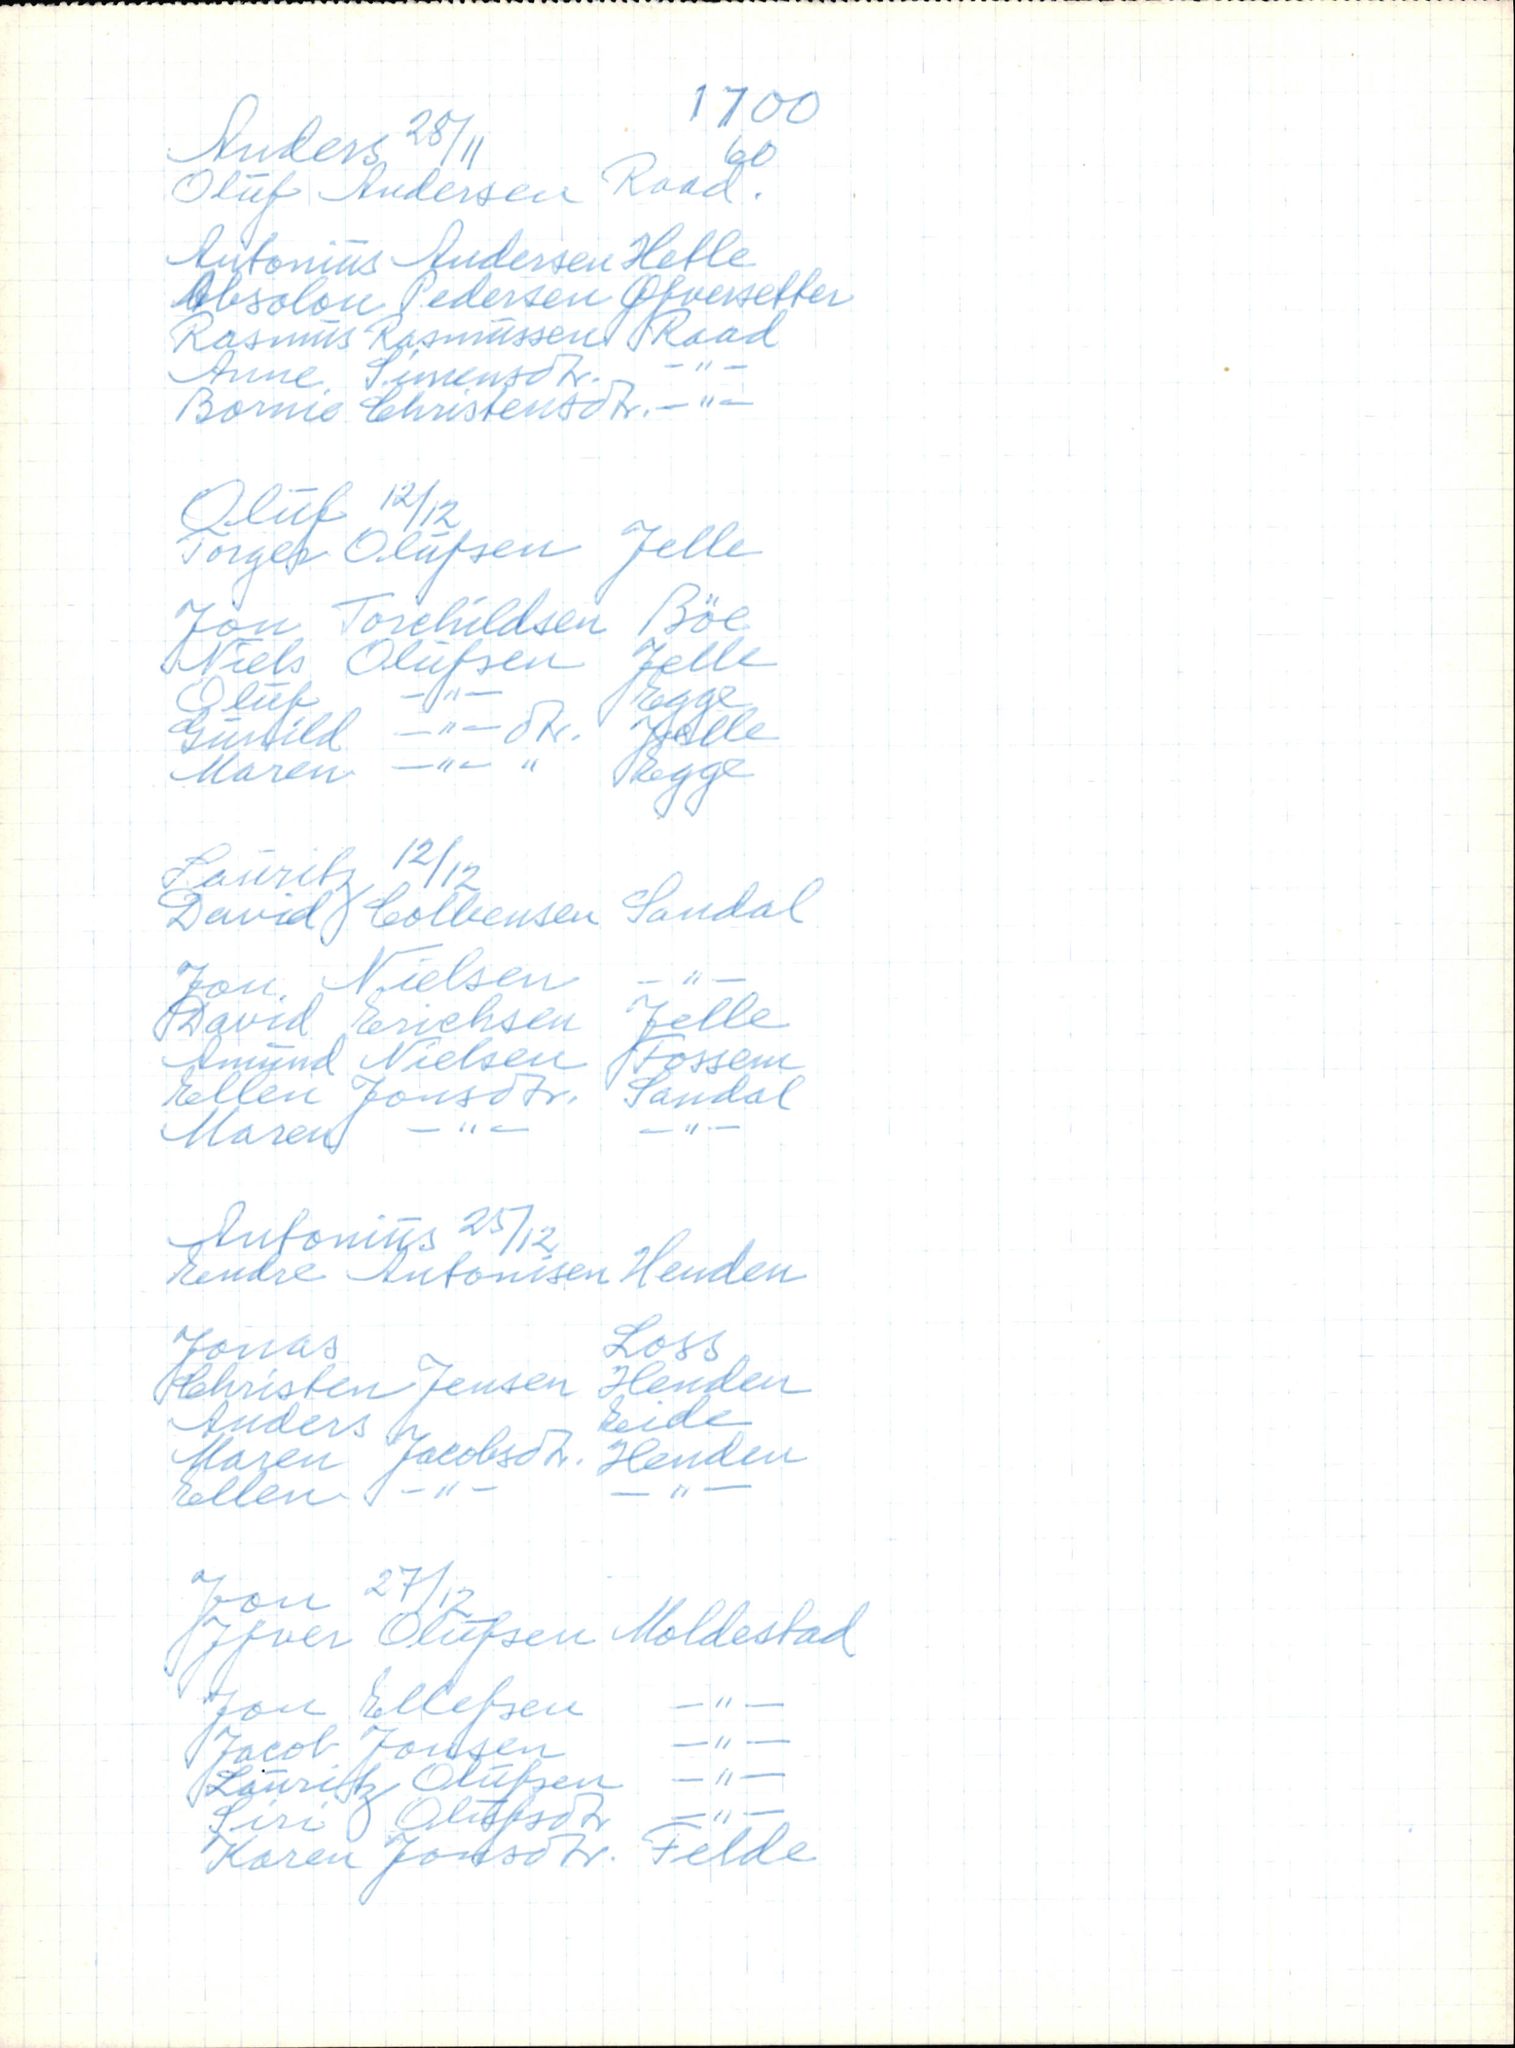 1700
60
Anders 28/11
Olüf Andersen Raad.
Antoniüs Andersen Hetle
Absolon Pedersen Øfversetter
Rasmüs Rasmüssen Raad
Anne Simensdtr. -"-
Bornie Christensdtr. -"-
Olüf 12/12
Torger Olüfsen Jelle
Jon Torchildsen Böe
Niels Olüfsen Jelle
Olüf -"- Egge
Günild -"- dtr. Jelle
Maren -"- " Egge
Laüritz 12/12
David Colbensen Sandal
Jon Nielsen -"-
David Erichsen Jelle
Amünd Nielsen Fossem
Ellen Jonsdtr. Sandal
Maren -"- -"-
Antoniüs 25/12
Endre Antonisen Henden
Jonas Loss
Christen Jensen Henden
Anders Eide
Maren Jacobsdtr. Henden
Ellen -"- -"-
Jon 27/12
Jfver Olüfsen Moldestad
Jon Ellefsen -"-
Jacob Jonsen -"-
Laüritz Olüfsen -"-
Siri Olüfsdtr -"-
Karen Jonsdtr. Felde